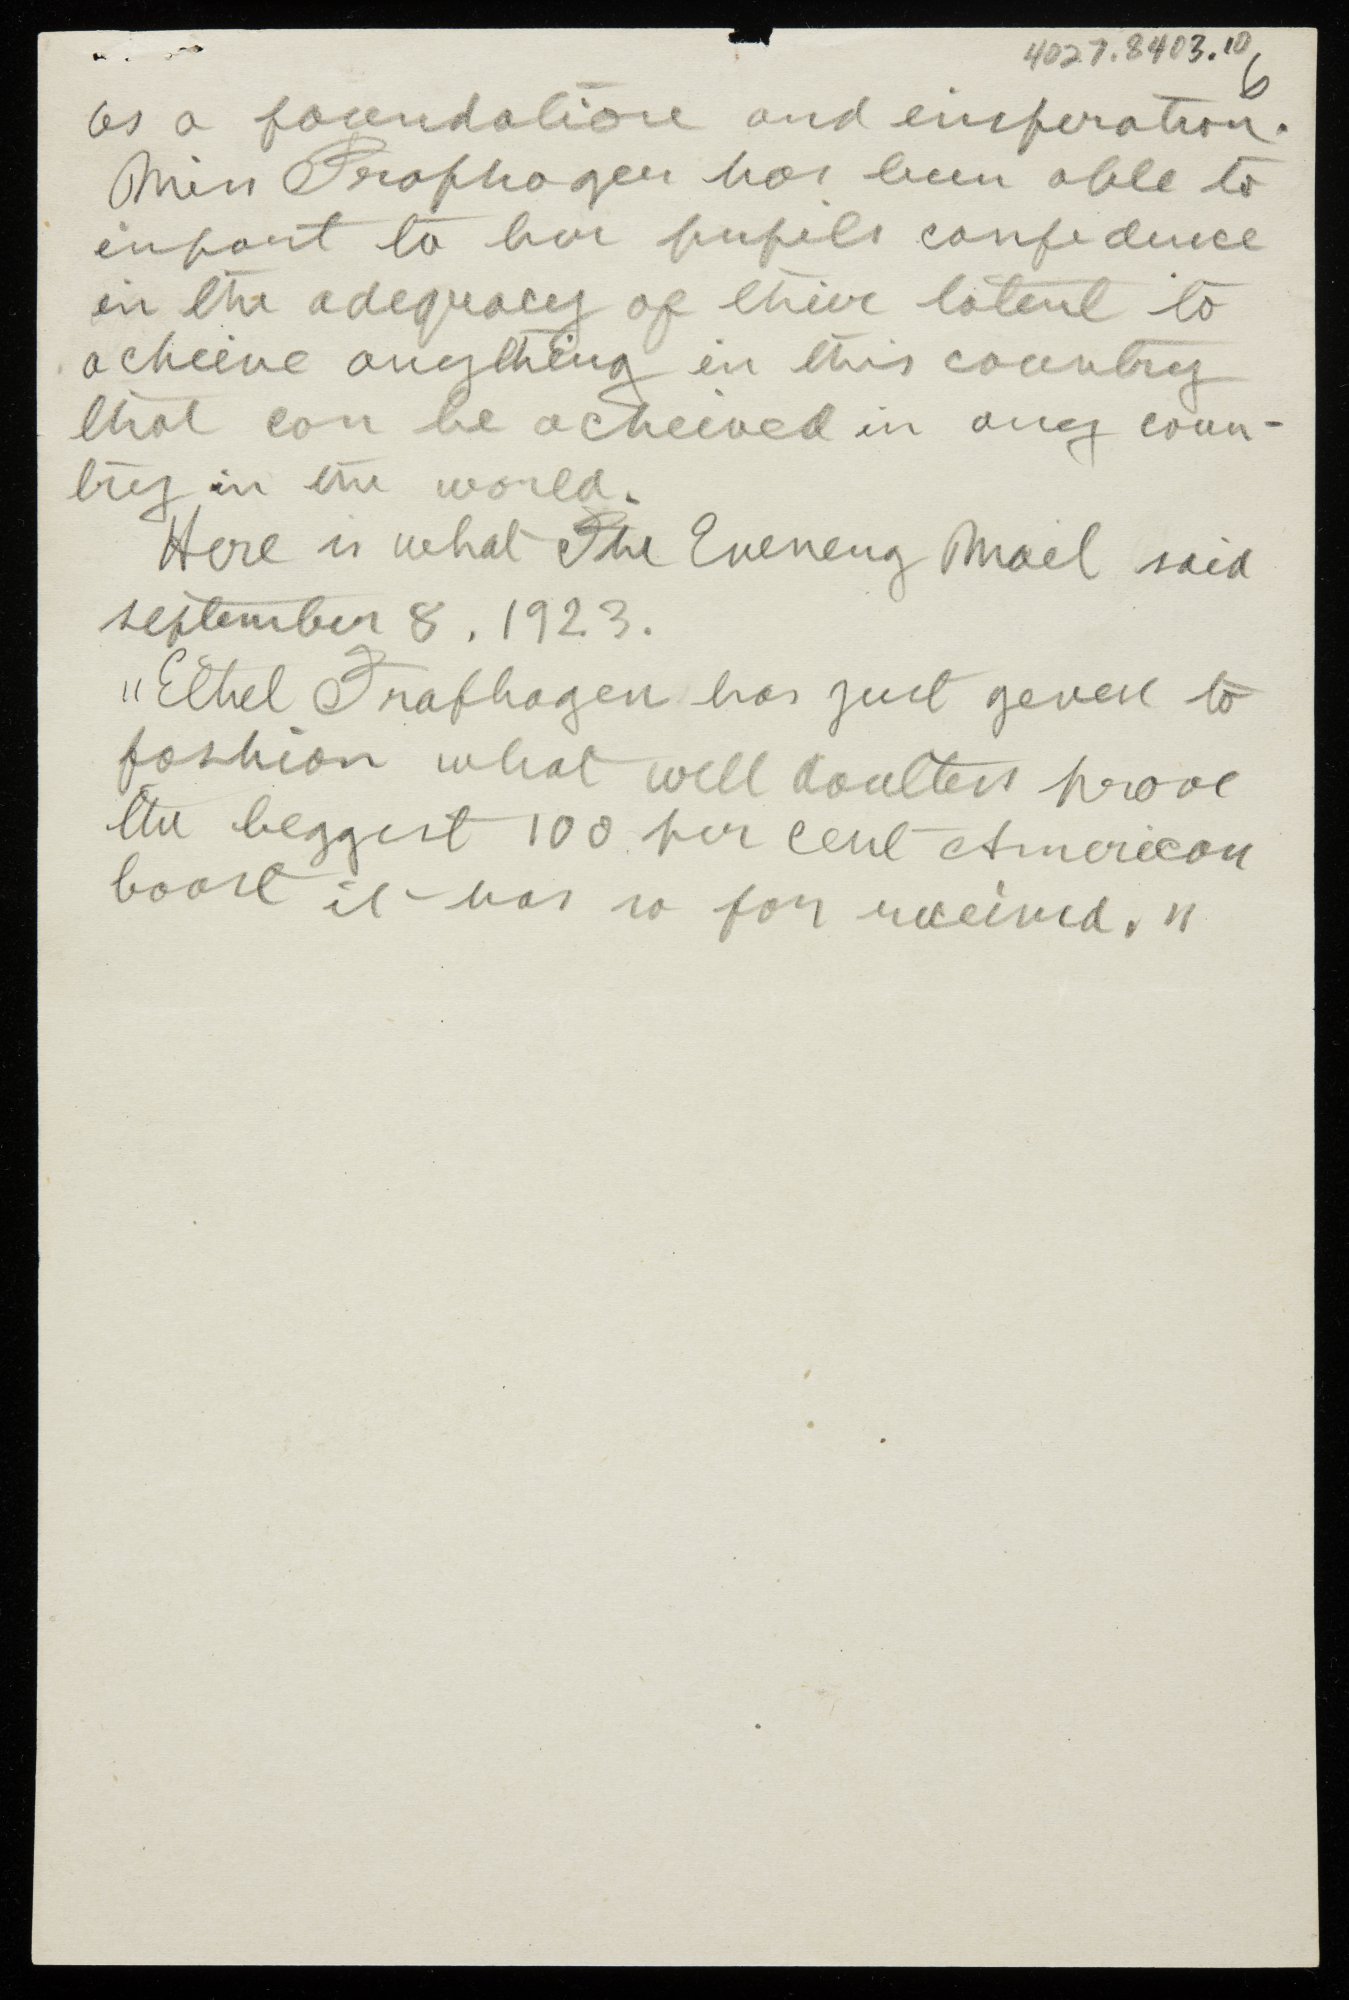 4027.8403.10
6
as a foundation and insperation.
Miss Traphagen has been able to
impart to her pupils confedence
in the adequacy of their latent to
acheive anything in this country
that can be acheived in any coun-
try in the world.
Here is what The Evening Mail said
september 8, 1923.
"Ethel Traphagen has just given to
fashion what will doultess prove
the biggest 100 per cent American
boost it has so far received."